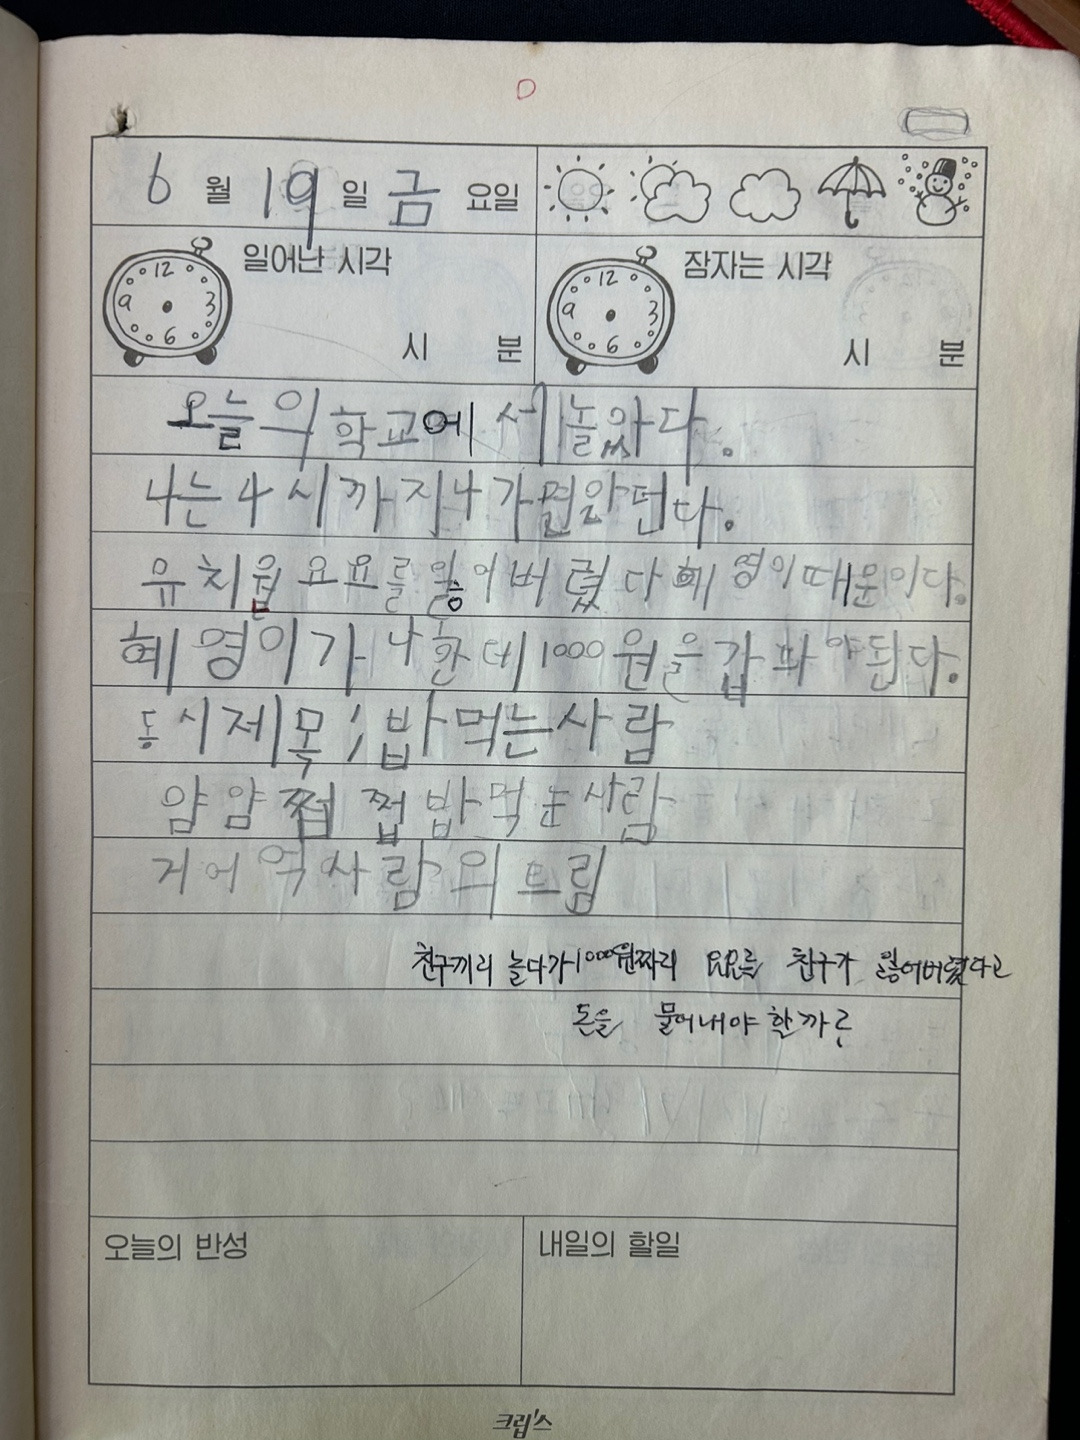 6 월 19 일 금 요일
일어난 시각
12
9 3
6
시 분
잠자는 시각
12
9 3
6
시 분
오늘의 학교에 서 놀았다.
나는 4시까지 나가면 안 된다.
유치원 요요를 잃어버렸다 혜영이 때문이다.
혜영이가 나한데 1000원을 갑파야된다.
동시제목; 밥먹는사람
얌얌 쩝쩝 밥먹는사람
거어억 사람의 트림
친구끼리 놀다가 1000원짜리 요요를 친구가 잃어버렸다고
돈을 물어내야 할까?
오늘의 반성
내일의 할일
크립스